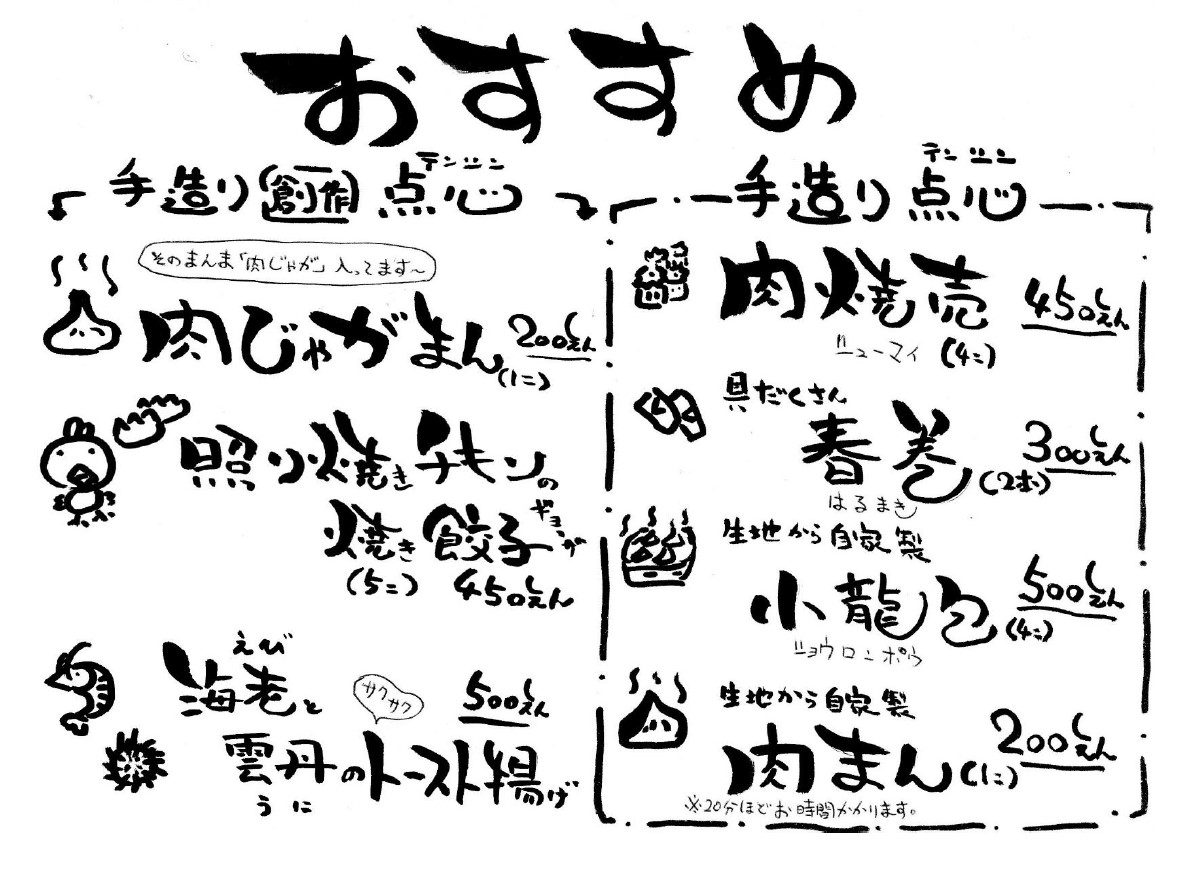 おすすめ
手造り 創作 点心
テンシン
そのまんま「肉じゃが」入ってます～
肉じゃがまん 200えん
(1コ)
照り焼きチキンの
焼き餃子
ギョーザ
(5コ) 450えん
えび
海老と
サクサク
500えん
雲丹のトースト揚げ
うに
手造り 点心
テンシン
肉焼売 450えん
シューマイ (4コ)
具だくさん
春巻 (2本) 300えん
はるまき
生地から自家製
小龍包 (4コ) 500えん
ショウロンポウ
生地から自家製
肉まん (1コ) 200えん
※20分ほどお時間かかります。